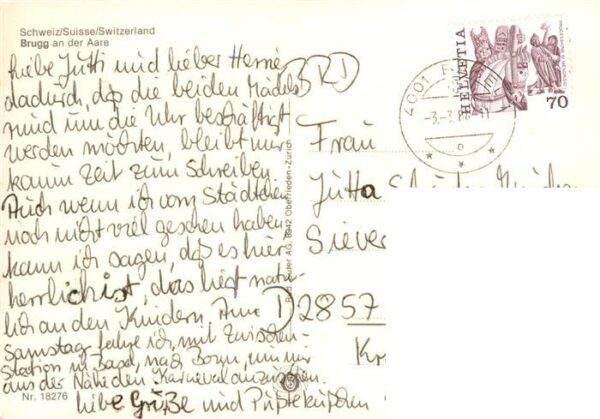 Schweiz/Suisse/Switzerland
Brugg an der Aare
Liebe Jutti und lieber Hernie
dadurch, daß die beiden Mädels
rund um die Uhr beschäftigt
werden möchten, bleibt mir
kaum Zeit zum Schreiben.
Auch wenn ich vom Städtchen
noch nicht viel gesehen habe,
kann ich sagen, daß es hier
herrlich ist, das liegt natür-
lich an den Kindern. Am
Samstag fahre ich, mit Zwischen-
station in Basel, nach Bonn, um mir
aus der Nähe den Karneval anzusehen.
Liebe Grüße und
Nr. 18276
AG, 8942 Oberrieden-Zürich
BRD
HELVETIA
70
4001
Frau
Jutta
Siever
D 2857